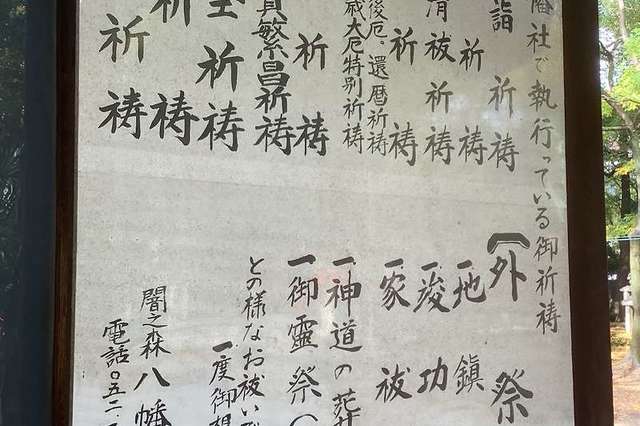 幡社で執行っている御祈祷
詣祈祷
祈祷
清祓祈祷
祈祷
後厄、還暦祈祷
歳大厄特別祈祷
祈祷
繁昌祈祷
祈祷
祈祷
祈祷
(外祭
一地鎮
一竣功
一家祓
一神道の葬
一御霊祭(
との様なお祓いで
一度御相
闇之森八幡
電話〇五二